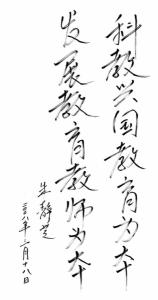 科教兴国教育为本
发展教育教师为本
朱静芝
二〇〇八年二月十八日